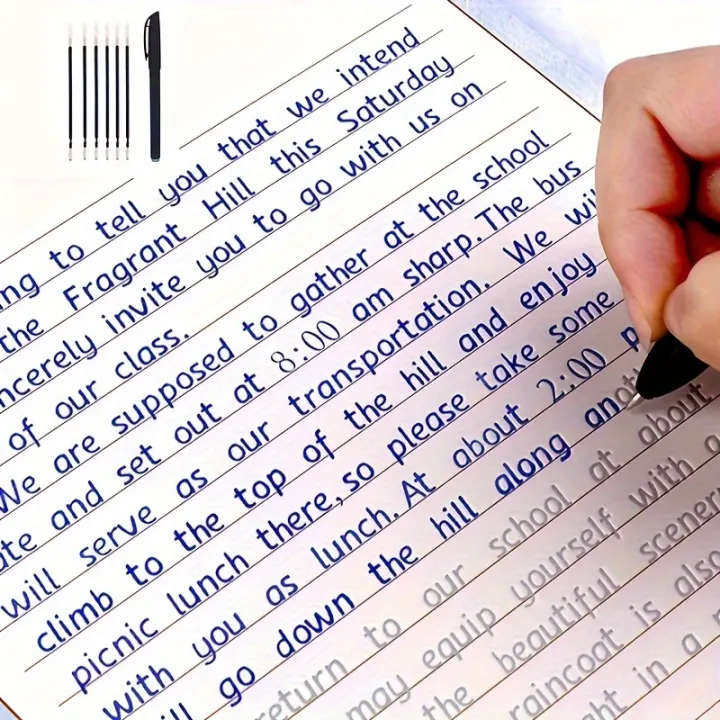 ng to tell you that we intend
the Fragrant Hill this Saturday
ncerely invite you to go with us on
of our class.
We are supposed to gather at the school
ate and set out at 8:00 am sharp. The bus
will serve as our transportation. We wil
climb to the top of the hill and enjoy
picnic lunch there, so please take some
with you as lunch. At about 2:00 p
ill go down the hill along anoth
return to our school at about
may equip yourself with a
the beautiful scener
raincoat is also
ht in a